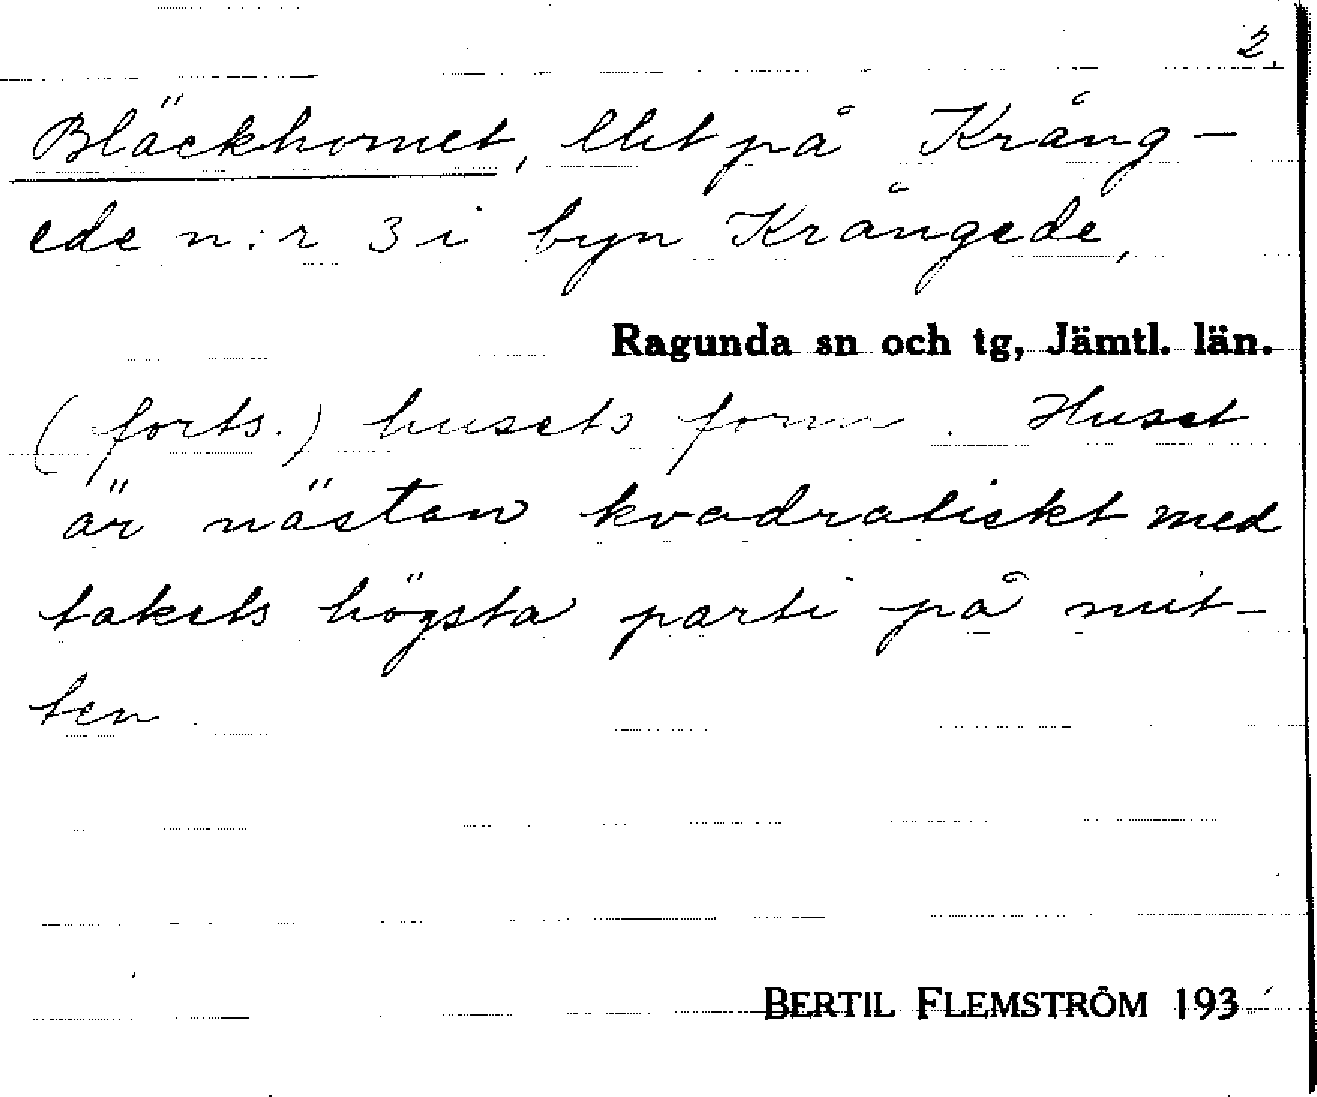 2.
Bläckhornet, lht på Kräng-
ede n:r 3 i byn Krångede,
Ragunda sn och tg, Jämtl. län.
(forts.) husets form. Huset
är nästan kvadratiskt med
takets högsta parti på mit-
ten.
BERTIL FLEMSTRÖM 193